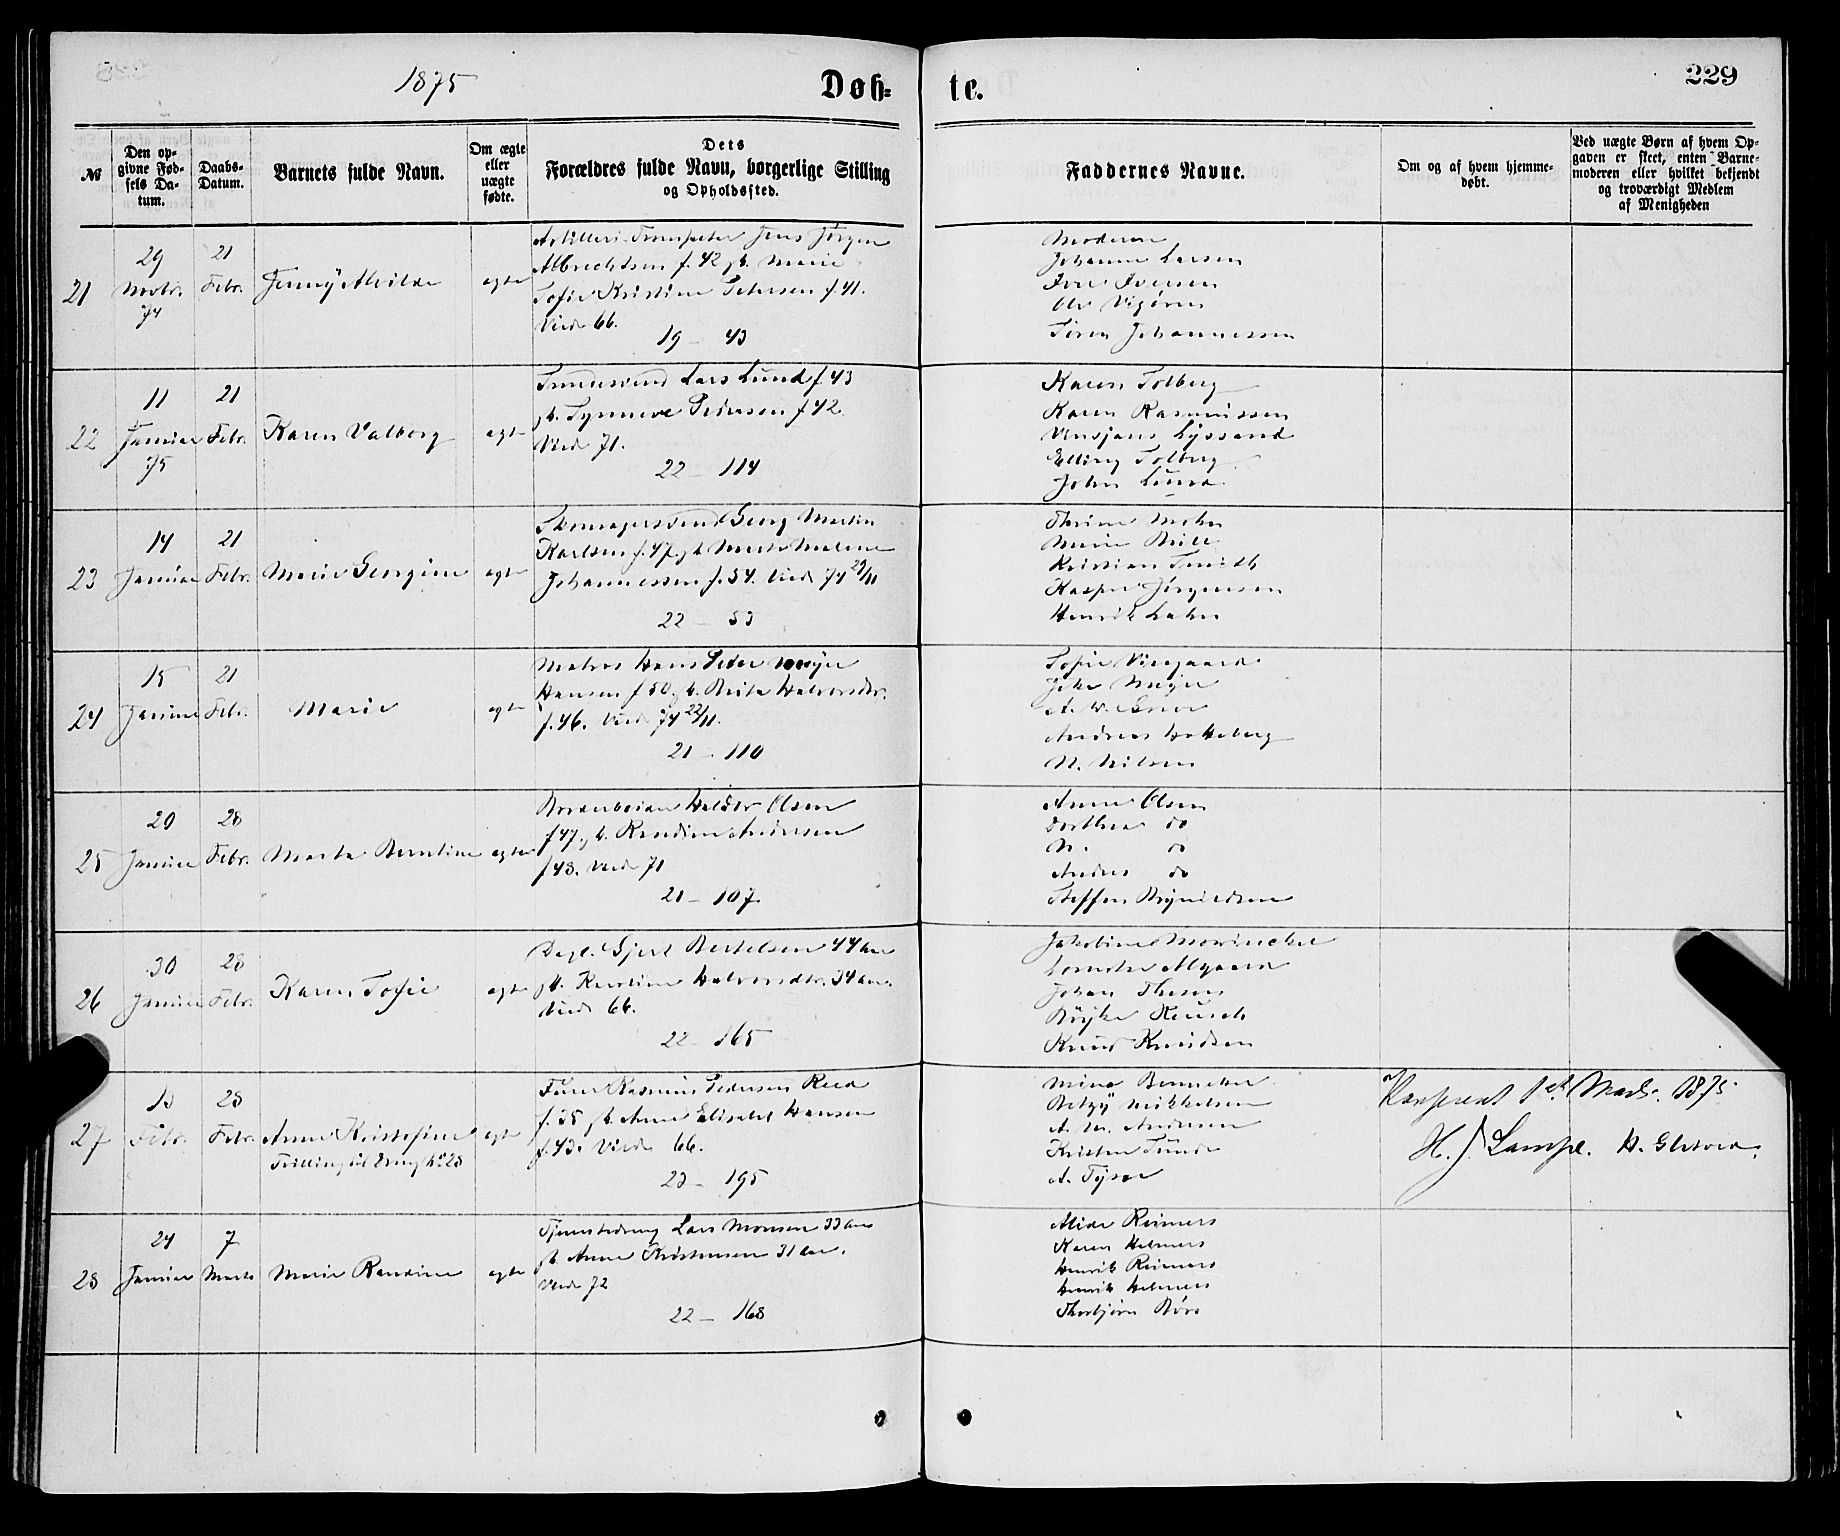 1875
Døb-
te.
229
№
Den op-
givne Fød-
sels Da-
tum.
Daabs-
Datum.
Barnets fulde Navn.
Om ægte
eller
uægte
fødte.
Dets
Forældres fulde Navn, borgerlige Stilling
og Opholdssted.
Faddernes Navne.
Om og af hvem hjemme-
døbt.
Ved uægte Børn af hvem Op-
gaven er skeet, enten Barne-
moderen eller hvilket bekjendt
og troværdigt Medlem
af Menigheden
21
29
Novbr.
74
21
Febr.
Jenny Alvilde
egte
Artilleri-Trompeter Jens Jørgen
Albrechtsen f. 42 h. Marie
Sofie Kristine Petersen f. 41.
Viede 66.
19 - 43
Moderen
Johanne Larsen
Iver Iversen
Søren Johannessen
22
11
Januar
75
21
Febr.
Karen Valborg
egte
Lars Lund f. 43
h. Synneve Pedersen f 42.
Viede 71.
22 - 114
Karen Solberg
Karen Rasmussen
Lyssand
Elling Solberg
John Lund
23
14
Januar
21
Febr.
Marie Georgine
egte
Skomagersvend Georg Martin
Karlsen f. 47, h Marta Malene
Johannessen f. 54. Viede 74 29/11
22 - 53
Thrine Mohn
Marie
Kristian Smith
Kasper Jørgensen
Henrik Lahn
24
15
Januar
21
Febr.
Marie
egte
Matros Hans Peder Meyer
Hansen f 50, h. Brita Halvorsdtr.
f. 46. Viede 74 22/11.
21 - 110
Sofie Visgaard
Meyer
Andreas Holteberg
N. Nilsen
25
20
Januar
28
Febr.
Marta Berntine
egte
Halvor Olsen
f 47, h. Randine Andersen
f 48. Viede 71
21 - 107
Anne Olsen
Dorthea do
N. do
Anders do
Steffen Brynildsen
26
30
Januar
28
Febr.
Karen Sofie
egte
Dagl. Gjert Bertelsen 44 Aar
h. Karoline Halvorsdtr. 34 Aar.
Viede 66.
22 - 165
Jakobine Mowinckel
Johan Thesen
Knud Knudsen
27
13
Febr.
28
Febr.
Anne Kristofine
Tvilling til Dreng No 28
egte
Rasmus Pedersen
f. 35 h. Anne Elisabet Hansen
f. 43. Viede 66.
23 - 195
Mina Bennecke
Betzy Mikkelsen
A. M. Andersen
Kristen Sunde
Konferert 1st Marts. 1875
H. J. Lampe.
28
24
Januar
7
Marts
Marie Randine
egte
Lars Monsen 33 Aar
h. Anna Kristensen 31 Aar.
Viede 72
22 - 168
Alida Reimers
Karen Helmers
Henrik Reimers
Henrik Helmers
Thorbjørn